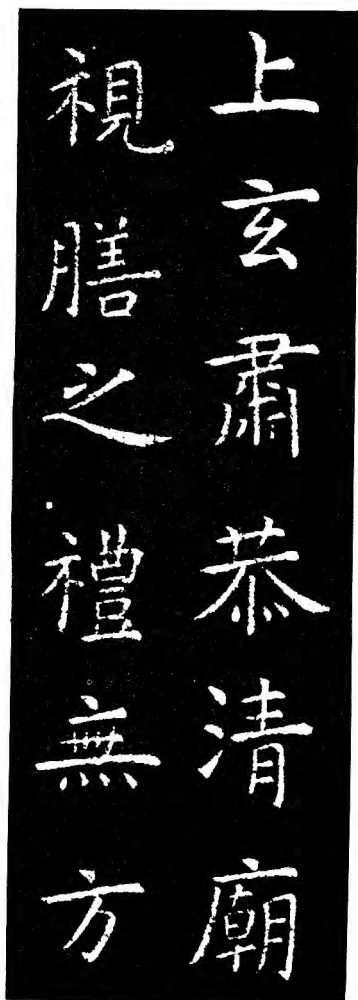 上玄肅恭清廟
視膳之禮無方